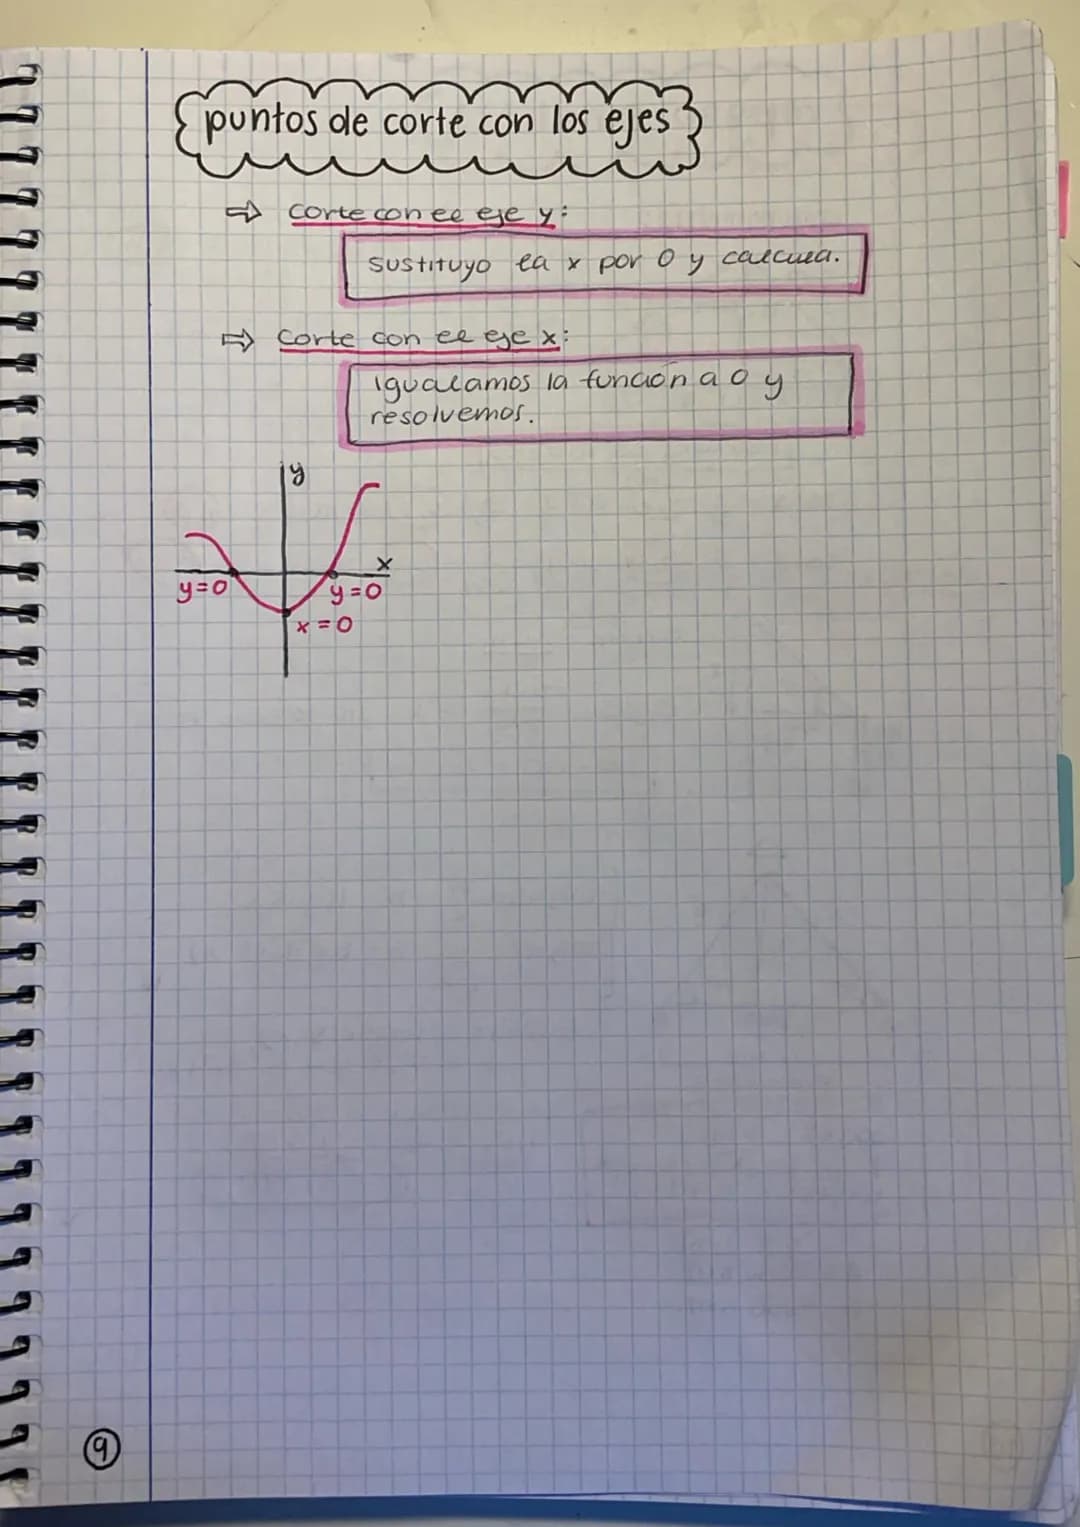 puntos de corte con los ejes
⇒ Corte con el eje y:
Sustituyo la x por 0 y calcula.
⇒ Corte con el eje x:
igualamos la función a 0 y
resolvemos.
y
x
y=0
y=0
x=0
9